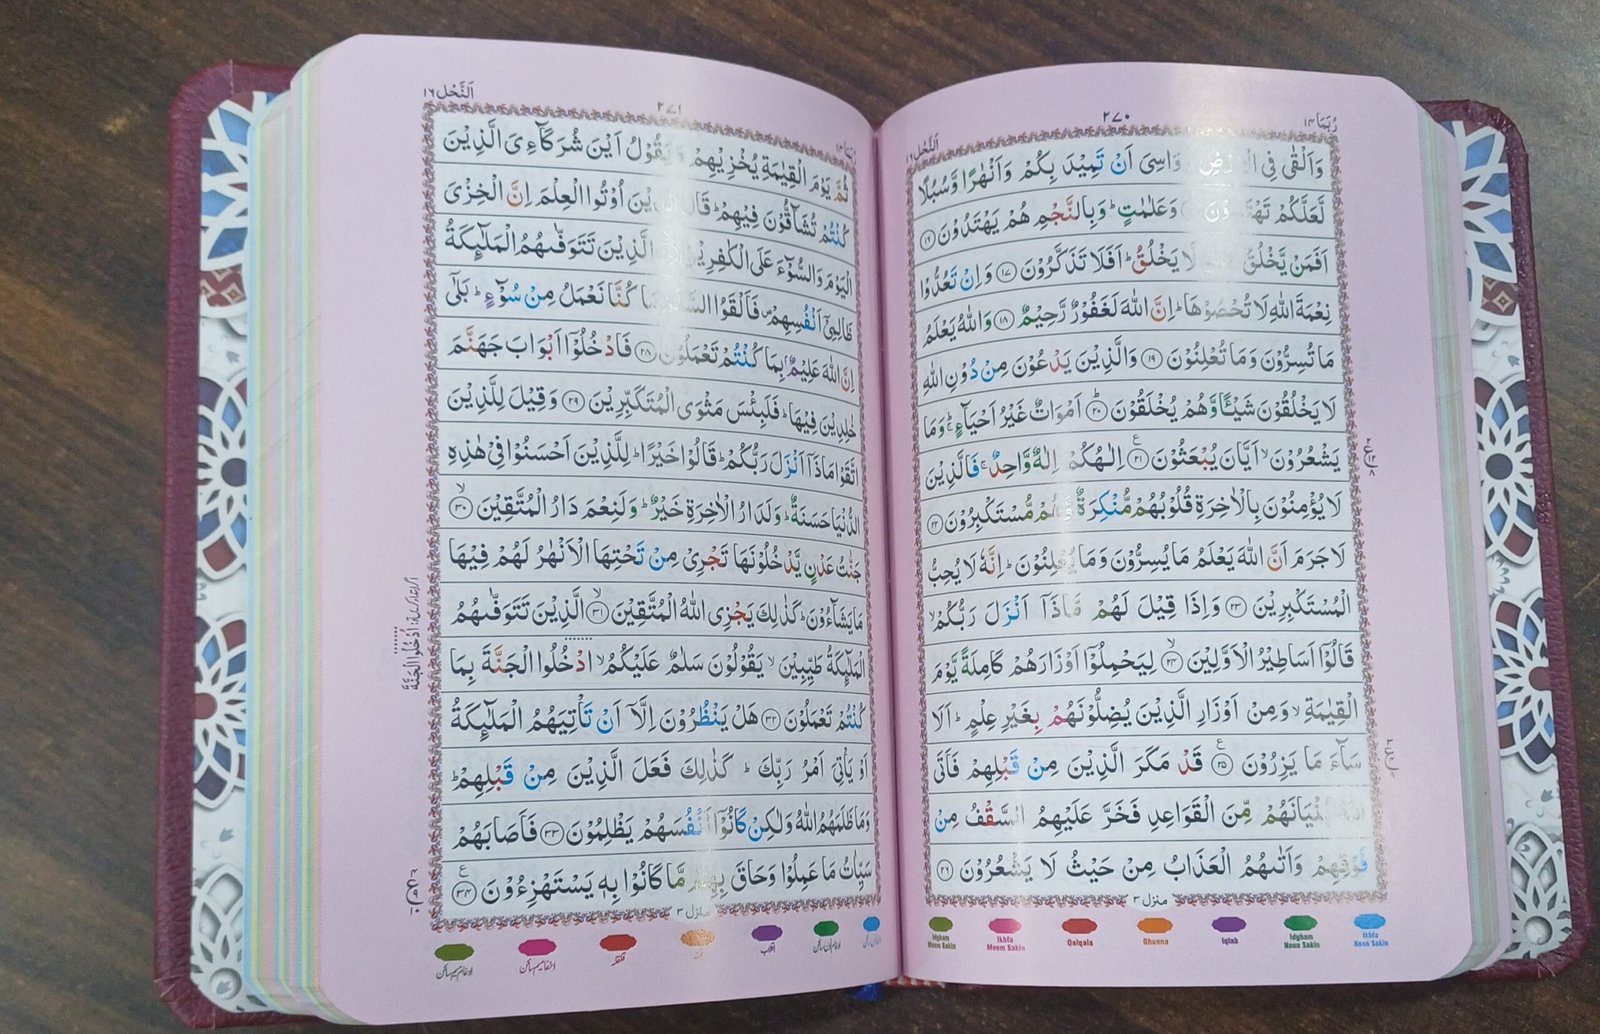 رُبَمَا ١٤ ٢٧٠ اَلنَّحْل ١٦
وَاَلْقٰى فِى وَاسِىَ اَنْ تَمِيْدَ بِكُمْ وَاَنْهٰرًا وَّسُبُلًا
لَّعَلَّكُمْ وَعَلٰمٰتٍ ؕ وَبِالنَّجْمِ هُمْ يَهْتَدُوْنَ ۝١٦
اَفَمَنْ يَّخْلُقُ لَا يَخْلُقُ ؕ اَفَلَا تَذَكَّرُوْنَ ۝١٧ وَاِنْ تَعُدُّوْا
نِعْمَةَ اللّٰهِ لَا تُحْصُوْهَا ؕ اِنَّ اللّٰهَ لَغَفُوْرٌ رَّحِيْمٌ ۝١٨ وَاللّٰهُ يَعْلَمُ
مَا تُسِرُّوْنَ وَمَا تُعْلِنُوْنَ ۝١٩ وَالَّذِيْنَ يَدْعُوْنَ مِنْ دُوْنِ اللّٰهِ
لَا يَخْلُقُوْنَ شَيْـًٔا وَّهُمْ يُخْلَقُوْنَ ۝٢٠ اَمْوَاتٌ غَيْرُ اَحْيَآءٍ ۚ وَمَا
يَشْعُرُوْنَ ۙ اَيَّانَ يُبْعَثُوْنَ ۝٢١ اِلٰهُكُمْ اِلٰهٌ وَّاحِدٌ ۚ فَالَّذِيْنَ
لَا يُؤْمِنُوْنَ بِالْاٰخِرَةِ قُلُوْبُهُمْ مُّنْكِرَةٌ وَّهُمْ مُّسْتَكْبِرُوْنَ ۝٢٢
لَا جَرَمَ اَنَّ اللّٰهَ يَعْلَمُ مَا يُسِرُّوْنَ وَمَا يُعْلِنُوْنَ ؕ اِنَّهٗ لَا يُحِبُّ
الْمُسْتَكْبِرِيْنَ ۝٢٣ وَاِذَا قِيْلَ لَهُمْ مَّاذَاۤ اَنْزَلَ رَبُّكُمْ ۙ
قَالُوْۤا اَسَاطِيْرُ الْاَوَّلِيْنَ ۝٢٤ لِيَحْمِلُوْۤا اَوْزَارَهُمْ كَامِلَةً يَّوْمَ
الْقِيٰمَةِ ۙ وَمِنْ اَوْزَارِ الَّذِيْنَ يُضِلُّوْنَهُمْ بِغَيْرِ عِلْمٍ ؕ اَلَا
سَآءَ مَا يَزِرُوْنَ ۝٢٥ قَدْ مَكَرَ الَّذِيْنَ مِنْ قَبْلِهِمْ فَاَتَى
اللّٰهُ بُنْيَانَهُمْ مِّنَ الْقَوَاعِدِ فَخَرَّ عَلَيْهِمُ السَّقْفُ مِنْ
فَوْقِهِمْ وَاَتٰىهُمُ الْعَذَابُ مِنْ حَيْثُ لَا يَشْعُرُوْنَ ۝٢٦
منزل ٣
Idgham Meem Sakin Ikhfa Meem Sakin Qalqala Ghunna Iqlab Idgham Noon Sakin Ikhfa Noon Sakin
٢٧١ اَلنَّحْل ١٦
ثُمَّ يَوْمَ الْقِيٰمَةِ يُخْزِيْهِمْ وَيَقُوْلُ اَيْنَ شُرَكَآءِىَ الَّذِيْنَ
كُنْتُمْ تُشَآقُّوْنَ فِيْهِمْ ؕ قَالَ الَّذِيْنَ اُوْتُوا الْعِلْمَ اِنَّ الْخِزْىَ
الْيَوْمَ وَالسُّوْٓءَ عَلَى الْكٰفِرِيْنَ الَّذِيْنَ تَتَوَفّٰىهُمُ الْمَلٰٓئِكَةُ
ظَالِمِىْۤ اَنْفُسِهِمْ ۪ فَاَلْقَوُا السَّلَمَ مَا كُنَّا نَعْمَلُ مِنْ سُوْٓءٍ ؕ بَلٰٓى
اِنَّ اللّٰهَ عَلِيْمٌۢ بِمَا كُنْتُمْ تَعْمَلُوْنَ ۝٢٨ فَادْخُلُوْۤا اَبْوَابَ جَهَنَّمَ
خٰلِدِيْنَ فِيْهَا ؕ فَلَبِئْسَ مَثْوَى الْمُتَكَبِّرِيْنَ ۝٢٩ وَقِيْلَ لِلَّذِيْنَ
اتَّقَوْا مَاذَاۤ اَنْزَلَ رَبُّكُمْ ؕ قَالُوْا خَيْرًا ؕ لِلَّذِيْنَ اَحْسَنُوْا فِىْ هٰذِهِ
الدُّنْيَا حَسَنَةٌ ؕ وَلَدَارُ الْاٰخِرَةِ خَيْرٌ ؕ وَلَنِعْمَ دَارُ الْمُتَّقِيْنَ ۙ۝٣٠
جَنّٰتُ عَدْنٍ يَّدْخُلُوْنَهَا تَجْرِىْ مِنْ تَحْتِهَا الْاَنْهٰرُ لَهُمْ فِيْهَا
مَا يَشَآءُوْنَ ؕ كَذٰلِكَ يَجْزِى اللّٰهُ الْمُتَّقِيْنَ ۙ۝٣١ الَّذِيْنَ تَتَوَفّٰىهُمُ
الْمَلٰٓئِكَةُ طَيِّبِيْنَ ۙ يَقُوْلُوْنَ سَلٰمٌ عَلَيْكُمُ ۙ ادْخُلُوا الْجَنَّةَ بِمَا
كُنْتُمْ تَعْمَلُوْنَ ۝٣٢ هَلْ يَنْظُرُوْنَ اِلَّاۤ اَنْ تَاْتِيَهُمُ الْمَلٰٓئِكَةُ
اَوْ يَاْتِىَ اَمْرُ رَبِّكَ ؕ كَذٰلِكَ فَعَلَ الَّذِيْنَ مِنْ قَبْلِهِمْ ؕ
وَمَا ظَلَمَهُمُ اللّٰهُ وَلٰكِنْ كَانُوْۤا اَنْفُسَهُمْ يَظْلِمُوْنَ ۝٣٣ فَاَصَابَهُمْ
سَيِّاٰتُ مَا عَمِلُوْا وَحَاقَ بِهِمْ مَّا كَانُوْا بِهٖ يَسْتَهْزِءُوْنَ ۝٣٤
منزل ٣
ادغام میم ساکن اخفا میم ساکن قلقلہ اقلاب